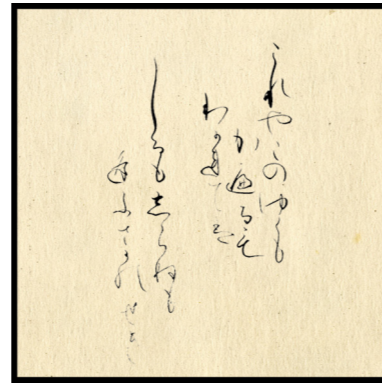 これやこのゆくも
かへるも
わかれて
しるもしらぬも
あふさかのせき